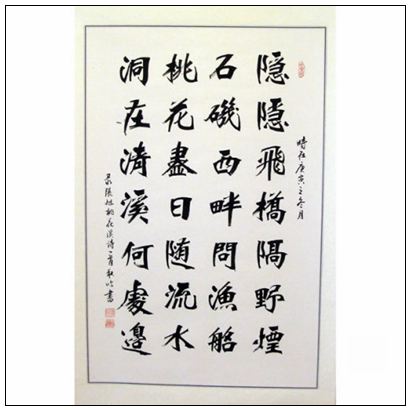 時在庚寅之冬月
隐隐飛橋隔野煙
石磯西畔問漁船
桃花盡日随流水
洞在清溪何處邊
录張旭桃花溪詩一首
書